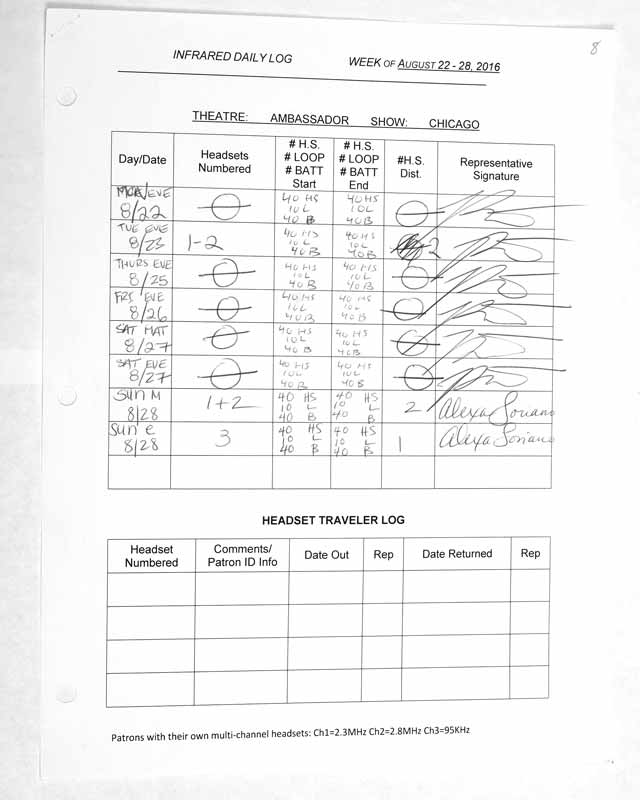 8
INFRARED DAILY LOG WEEK OF AUGUST 22 - 28, 2016
THEATRE: AMBASSADOR SHOW: CHICAGO
Day/Date
Headsets
Numbered
# H.S.
# LOOP
# BATT
Start
# H.S.
# LOOP
# BATT
End
#H.S.
Dist.
Representative
Signature
MON/EVE
8/22
40 HS
10L
40 B
40 HS
10L
40B
TUE EVE
8/23
1-2
40 HS
10L
40B
40 HS
10L
40B
2
THURS EVE
8/25
40 HS
10L
40B
40 HS
10L
40B
FRI EVE
8/26
40 HS
10L
40B
40 HS
10L
40B
SAT MAT
8/27
40 HS
10L
40B
40 HS
10L
40B
SAT EVE
8/27
40 HS
10L
40B
40 HS
10L
40B
Sun M
8/28
1+2
40 HS
10 L
40 B
40 HS
10 L
40 B
2
Alexa Soriano
Sun e
8/28
3
40 HS
10 L
40 B
40 HS
10 L
40 B
1
Alexa Soriano
HEADSET TRAVELER LOG
Headset
Numbered
Comments/
Patron ID Info
Date Out
Rep
Date Returned
Rep
Patrons with their own multi-channel headsets: Ch1=2.3MHz Ch2=2.8MHz Ch3=95KHz